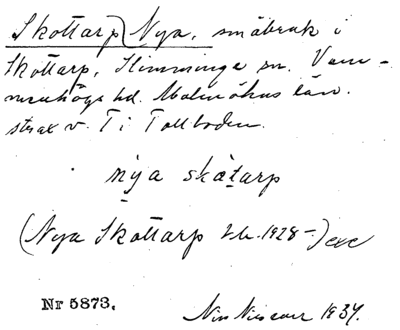 Skottarp, Nya, småbruk i
Skottarp, Slimminge sn. Vem-
menhögs hd. Malmöhus län.
strax v. T i Tullboden.
nya skåtarp
(Nya Skottarp 1928-) exc
Nr 5873.
1937.